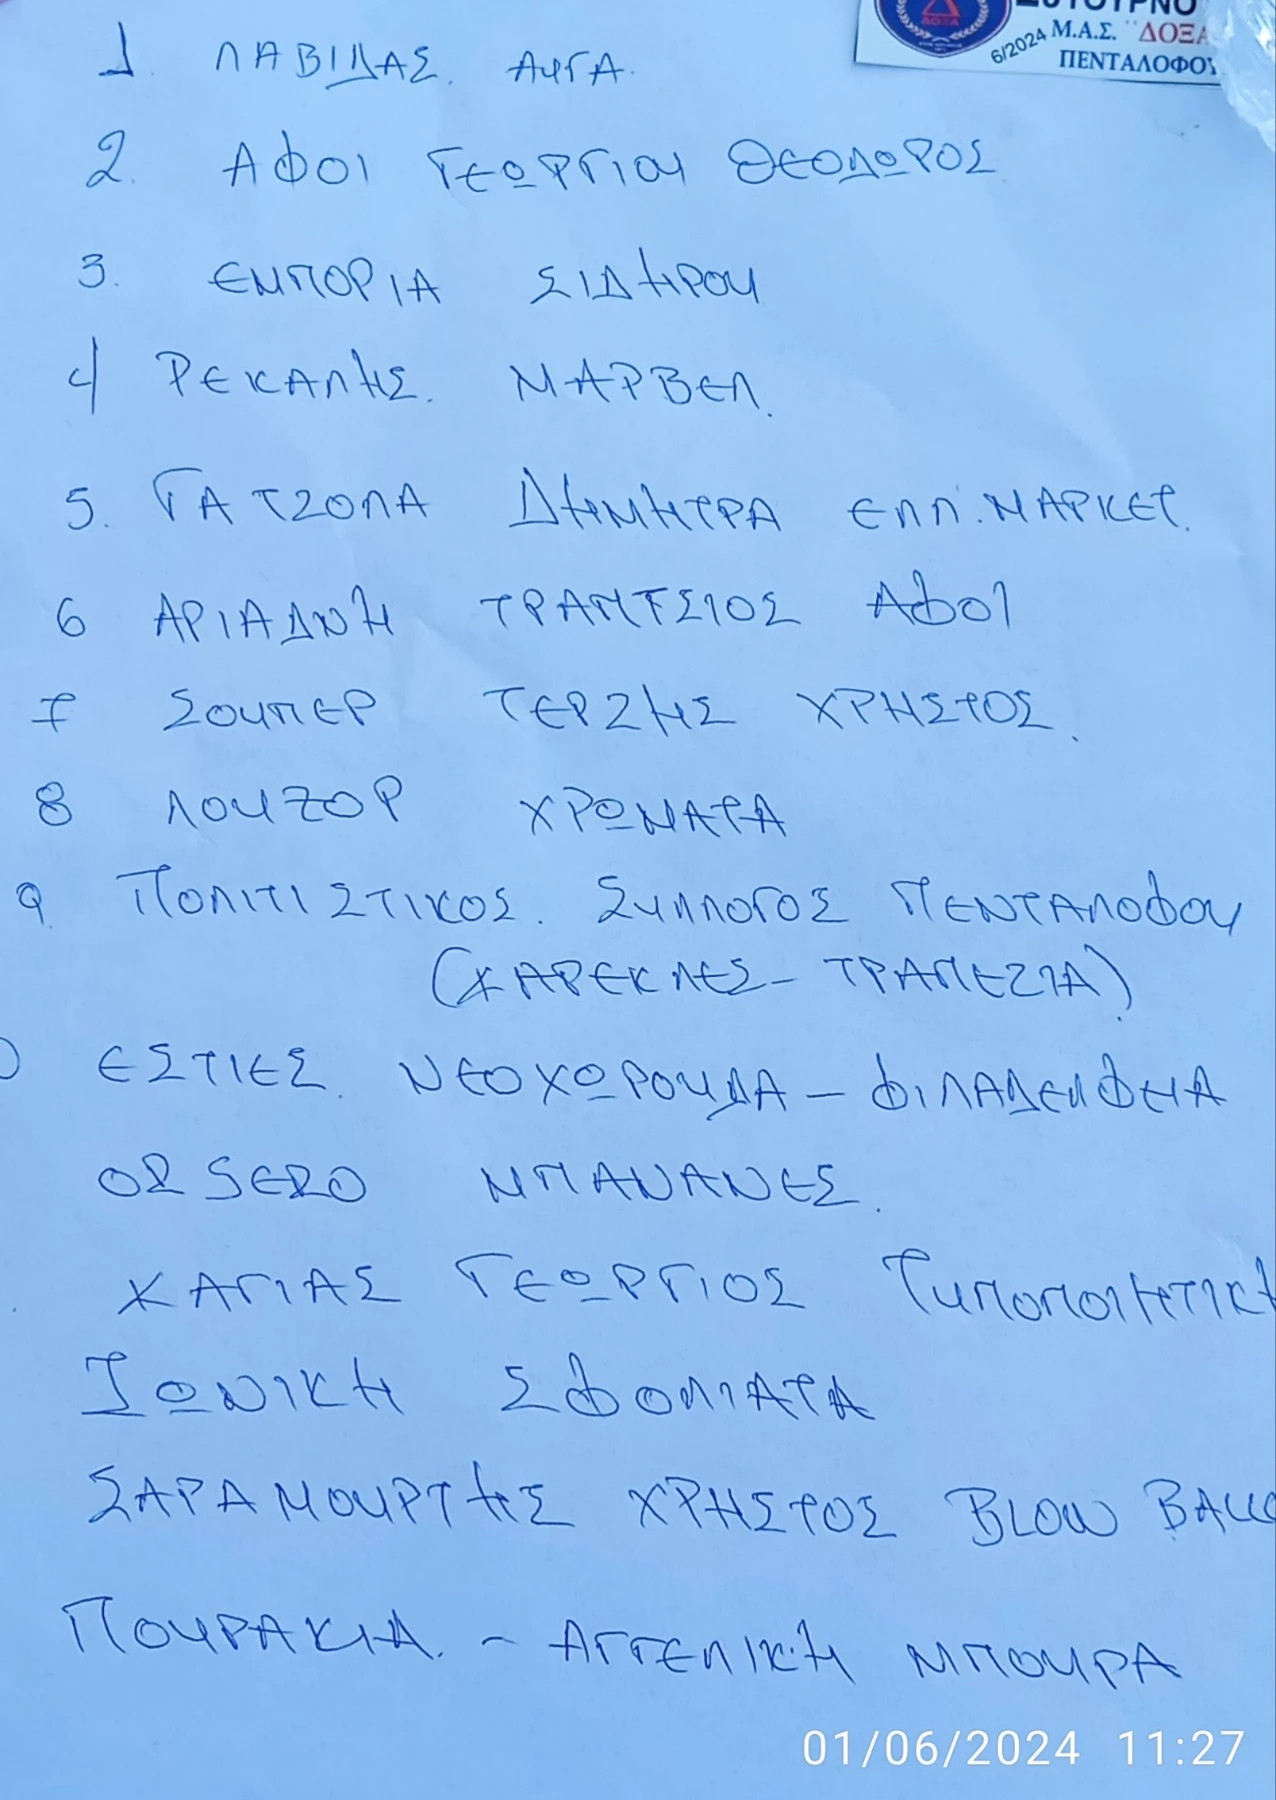 ΖΟΥΡΝΟ
Μ.Α.Σ. "ΔΟΞΑ
6/2024
ΠΕΝΤΑΛΟΦΟΥ
ΔΟΞΑ
1. ΛΑΒΙΔΑΣ. ΑΥΓΑ.
2. ΑΦΟΙ ΓΕΩΡΓΙΟΥ ΘΕΟΔΩΡΟΣ
3. ΕΜΠΟΡΙΑ ΣΙΔΗΡΟΥ
4 ΡΕΚΑΛΗΣ. ΜΑΡΒΕΛ.
5. ΓΑΤΖΟΛΑ ΔΗΜΗΤΡΑ ΕΛΛ. ΜΑΡΚΕΤ.
6 ΑΡΙΑΔΝΗ ΤΡΑΠΤΣΙΟΣ ΑΦΟΙ
7 ΣΟΥΠΕΡ ΤΕΡΖΗΣ ΧΡΗΣΤΟΣ.
8 ΛΟΥΖΟΡ ΧΡΩΜΑΤΑ
9 ΠΟΛΙΤΙΣΤΙΚΟΣ. ΣΥΛΛΟΓΟΣ ΠΕΝΤΑΛΟΦΟΥ
(ΚΑΡΕΚΛΕΣ - ΤΡΑΠΕΖΙΑ)
0 ΕΣΤΙΕΣ. ΝΕΟΧΩΡΟΥΔΑ - ΦΙΛΑΔΕΛΦΕΙΑ
ORSERO ΜΠΑΝΑΝΕΣ.
ΧΑΓΙΑΣ ΓΕΩΡΓΙΟΣ ΤΥΠΟΠΟΙΗΤΙΚΗ
ΙΩΝΙΚΗ ΣΦΟΛΙΑΤΑ
ΣΑΡΑΜΟΥΡΤΗΣ ΧΡΗΣΤΟΣ BLOW BALLO
ΠΟΥΡΑΚΙΑ. - ΑΓΓΕΛΙΚΗ ΜΠΟΥΡΑ
01/06/2024 11:27